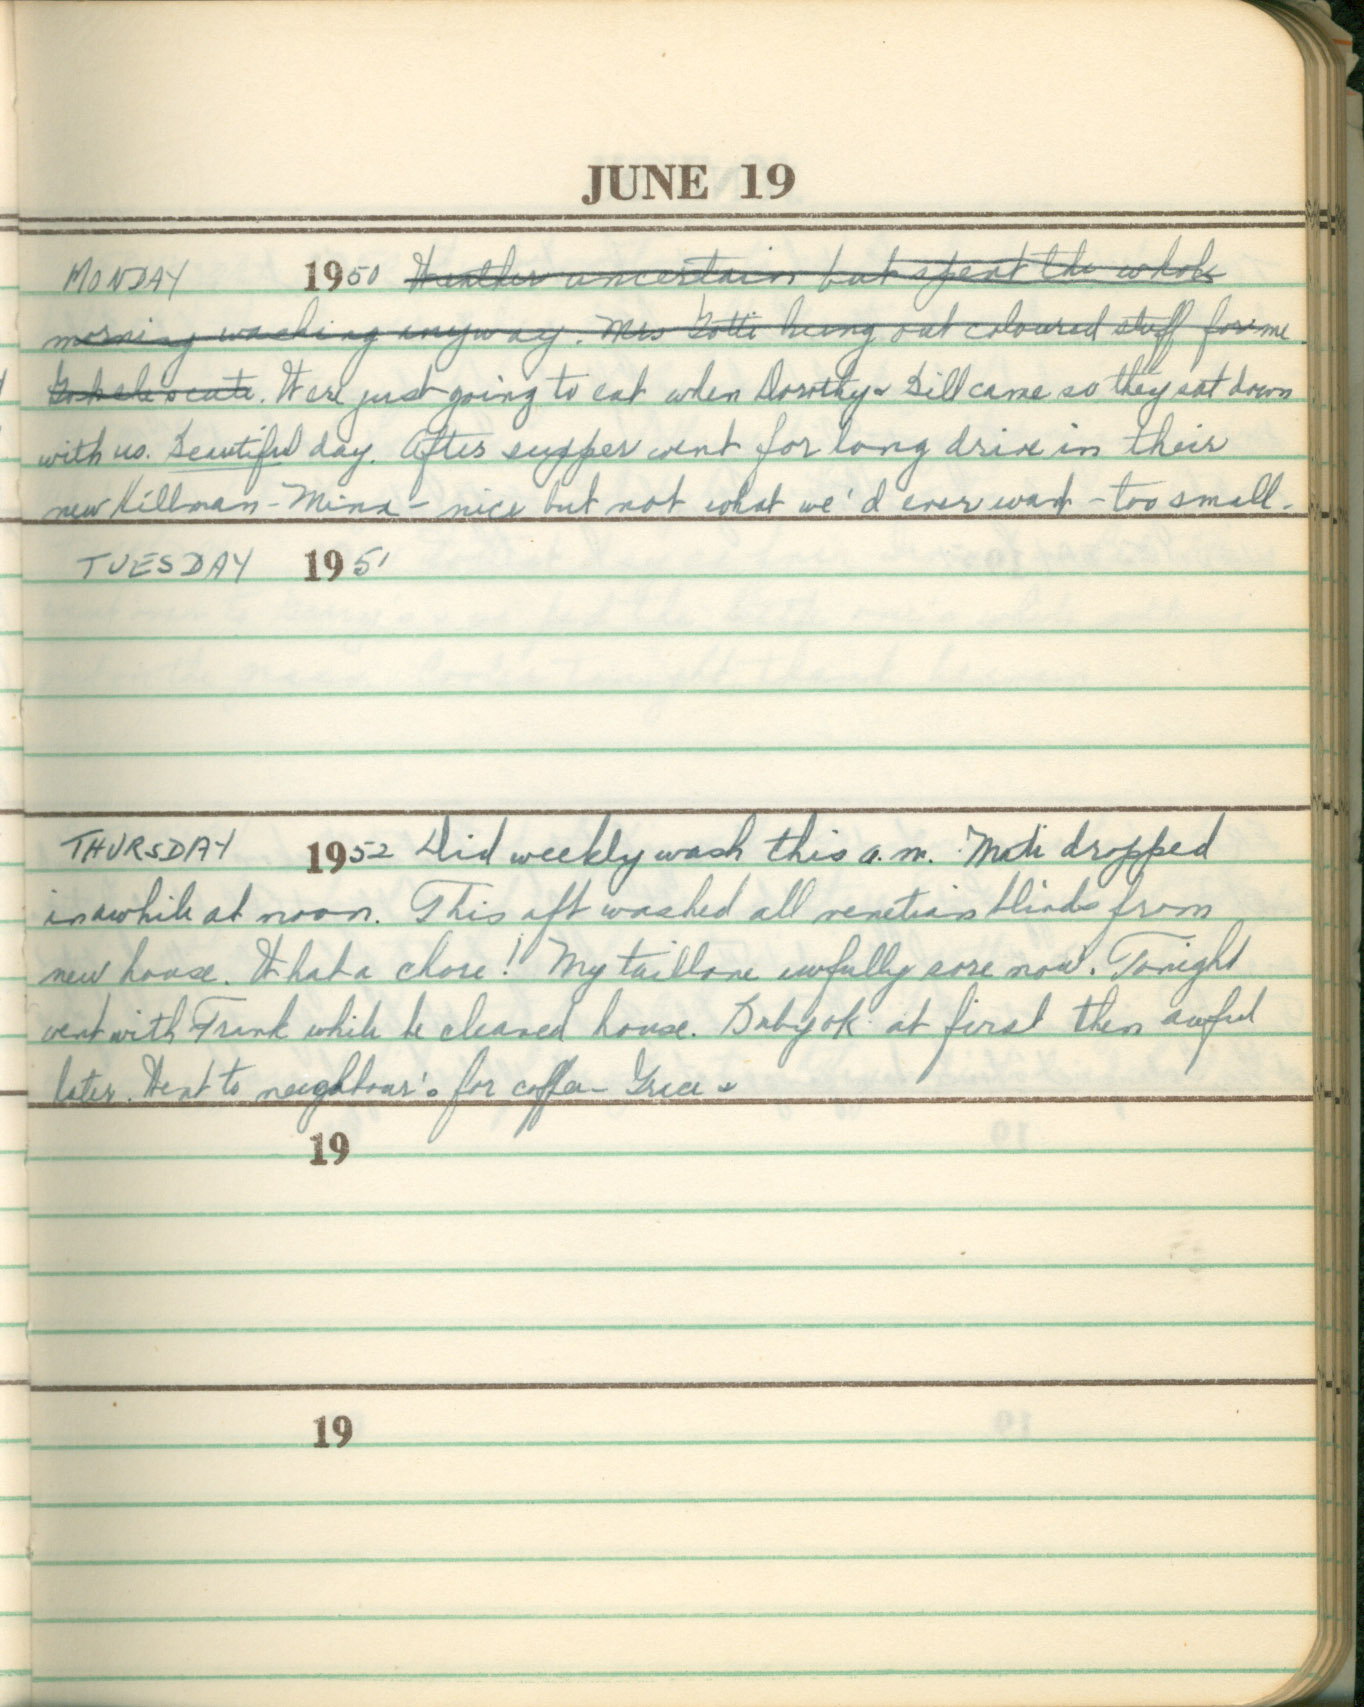 JUNE 19
MONDAY 1950 Weather uncertain but spent the whole
morning washing anyway. Mrs Gotti hung out coloured stuff for me.
Were just going to eat when Dorothy & Bill came so they sat down
with us. Beautiful day. After supper went for long drive in their
new Hillman-Minx - nice but not what we'd ever want - too small.
TUESDAY 1951
THURSDAY 1952 Did weekly wash this a.m. dropped
in awhile at noon. This aft washed all venetian blinds from
new house. What a chore! My tailbone awfully sore now. Tonight
went with Frank while he cleaned house. Baby ok at first then awful
later. Went to neighbour's for coffee - Grace &
19
19